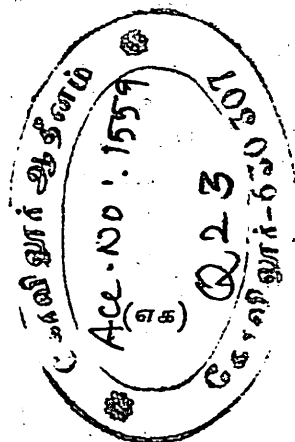 கோவிலூர் ஆதீனம்
Acc. No: 1559
(எக)
Q23
கோவிலூர்-630307